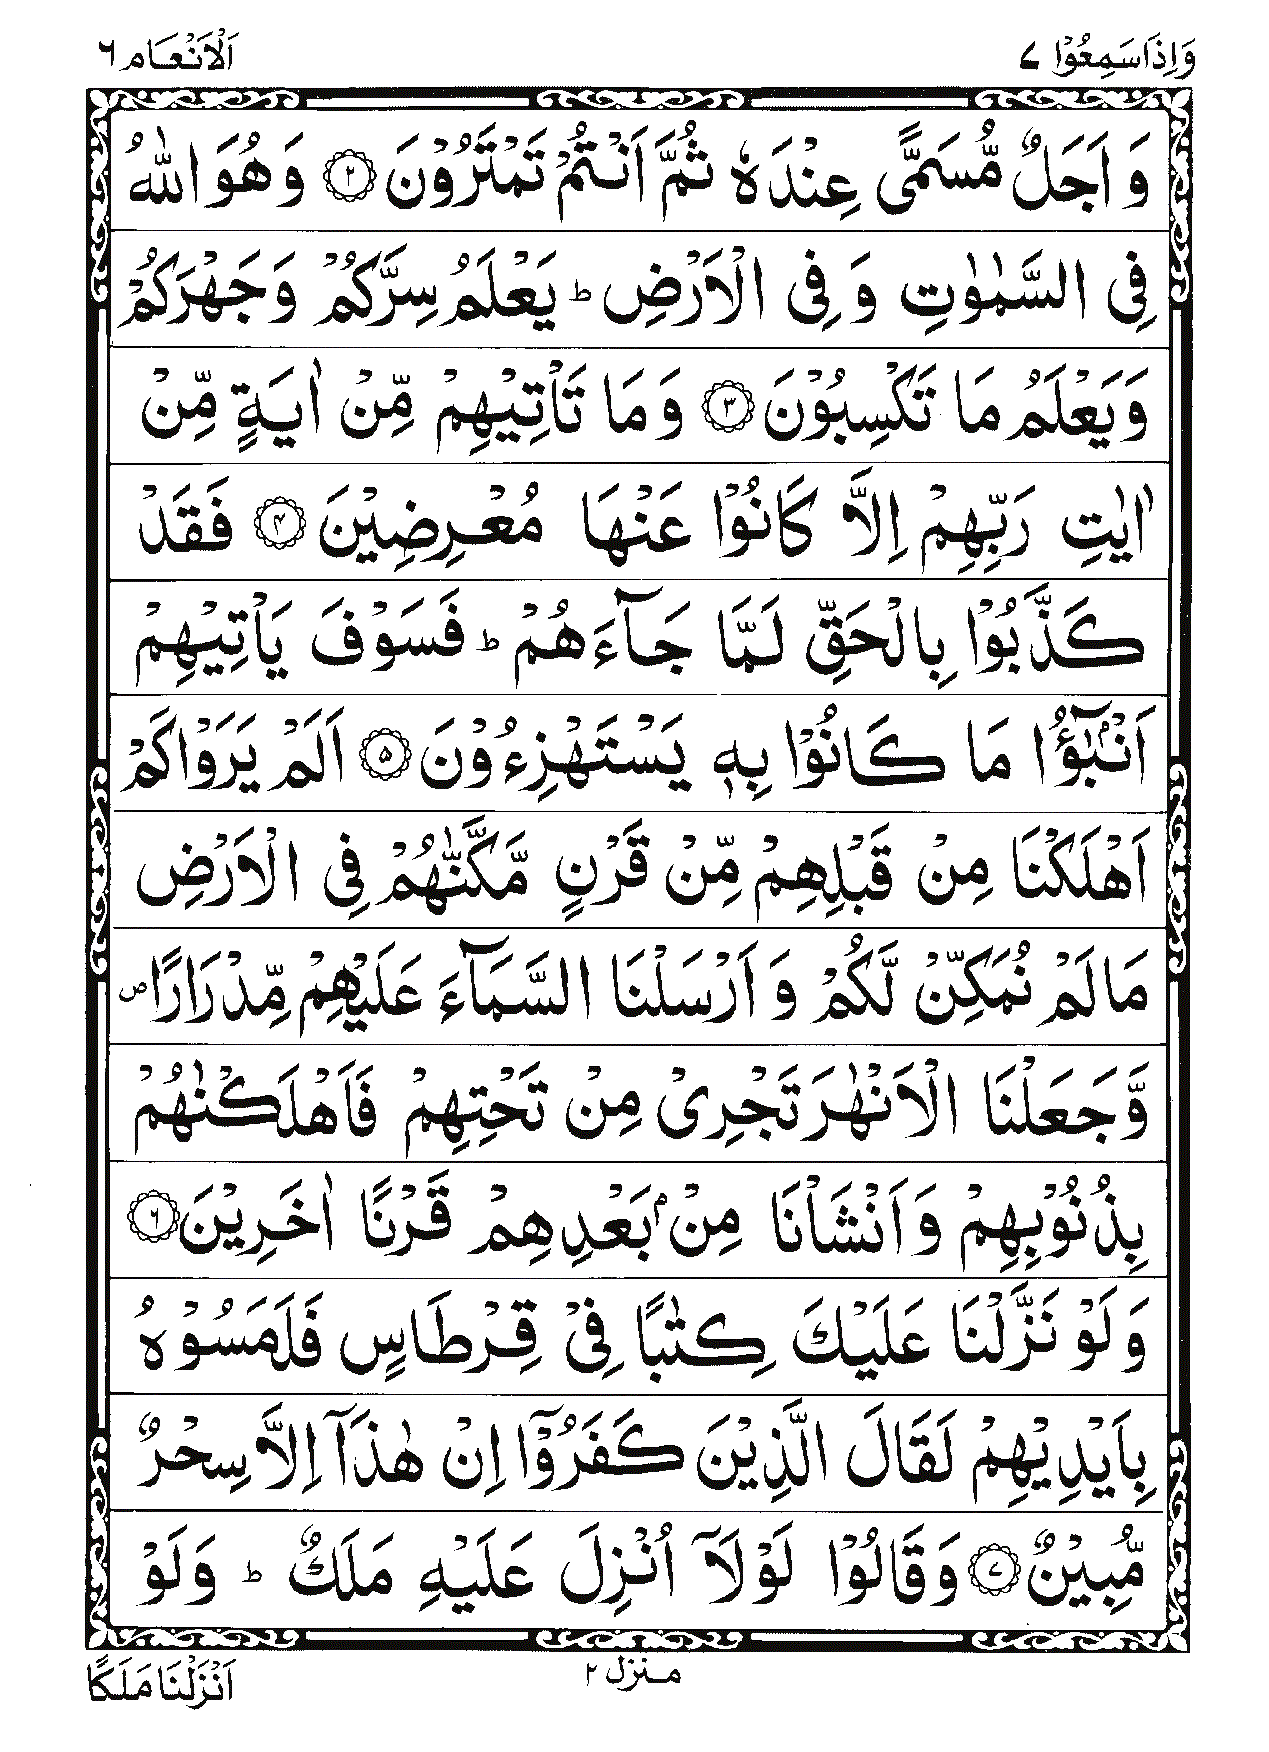 وَاِذَاسَمِعُوْا ٧
اَلْاَنْعَام ٦
وَ اَجَلٌ مُّسَمًّى عِنْدَهٗ ثُمَّ اَنْتُمْ تَمْتَرُوْنَ ٢ وَ هُوَ اللّٰهُ
فِى السَّمٰوٰتِ وَ فِى الْاَرْضِ ؕ يَعْلَمُ سِرَّكُمْ وَ جَهْرَكُمْ
وَ يَعْلَمُ مَا تَكْسِبُوْنَ ٣ وَ مَا تَاْتِيْهِمْ مِّنْ اٰيَةٍ مِّنْ
اٰيٰتِ رَبِّهِمْ اِلَّا كَانُوْا عَنْهَا مُعْرِضِيْنَ ۴ فَقَدْ
كَذَّبُوْا بِالْحَقِّ لَمَّا جَآءَهُمْ ؕ فَسَوْفَ يَاْتِيْهِمْ
اَنْۢبٰٓؤُا مَا كَانُوْا بِهٖ يَسْتَهْزِءُوْنَ ۵ اَلَمْ يَرَوْا كَمْ
اَهْلَكْنَا مِنْ قَبْلِهِمْ مِّنْ قَرْنٍ مَّكَّنّٰهُمْ فِى الْاَرْضِ
مَا لَمْ نُمَكِّنْ لَّكُمْ وَ اَرْسَلْنَا السَّمَآءَ عَلَيْهِمْ مِّدْرَارًا ۪
وَّ جَعَلْنَا الْاَنْهٰرَ تَجْرِىْ مِنْ تَحْتِهِمْ فَاَهْلَكْنٰهُمْ
بِذُنُوْبِهِمْ وَ اَنْشَاْنَا مِنْۢ بَعْدِهِمْ قَرْنًا اٰخَرِيْنَ ٦
وَ لَوْ نَزَّلْنَا عَلَيْكَ كِتٰبًا فِىْ قِرْطَاسٍ فَلَمَسُوْهُ
بِاَيْدِيْهِمْ لَقَالَ الَّذِيْنَ كَفَرُوْۤا اِنْ هٰذَاۤ اِلَّا سِحْرٌ
مُّبِيْنٌ ٧ وَ قَالُوْا لَوْلَاۤ اُنْزِلَ عَلَيْهِ مَلَكٌ ؕ وَ لَوْ
منزل ٢
اَنْزَلْنَا مَلَكًا